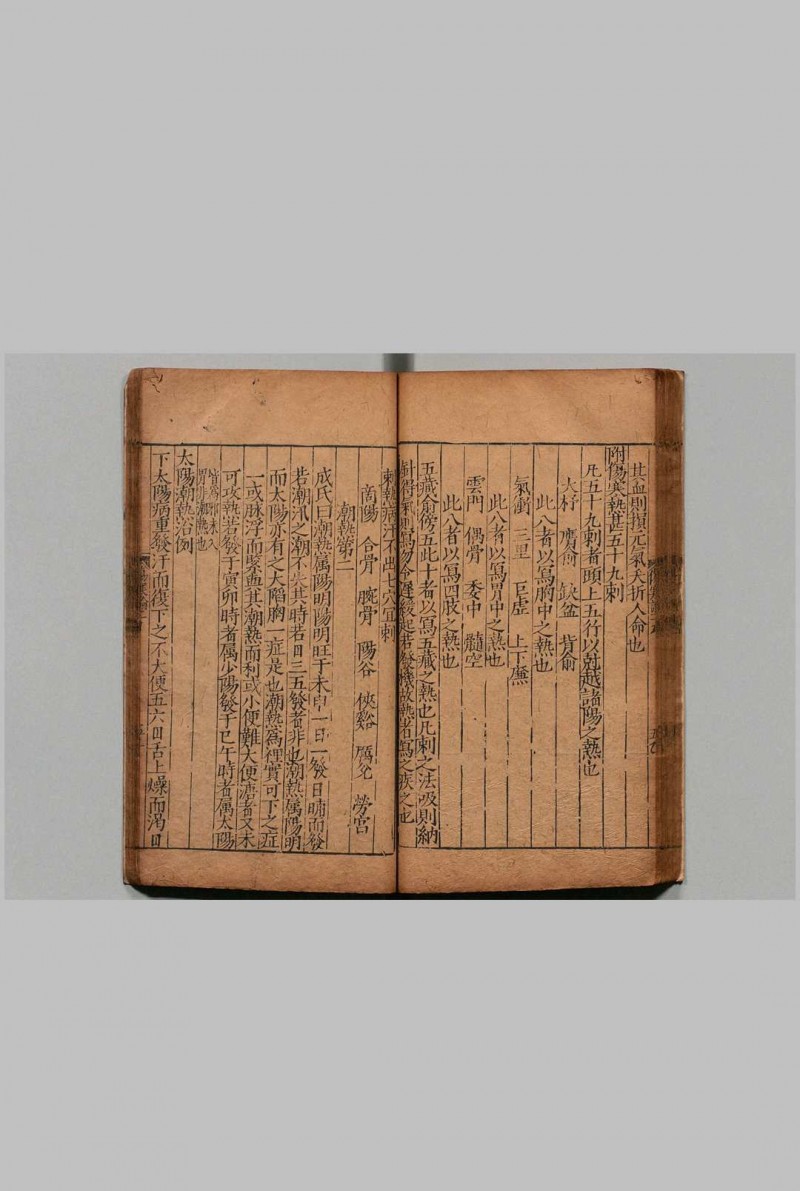 其血則損元氣夭折人命也
附傷寒熱甚五十九刺
凡五十九刺者頭上五行以尅越諸陽之熱也
大杼　膺俞　缺盆　背俞
此八者以寫胸中之熱也
氣衝　三里　巨虛　上下廉
此八者以寫胃中之熱也
雲門　偶骨　委中　髓空
此八者以寫四肢之熱也
五藏俞傍五此十者以寫五藏之熱也凡刺之法吸則納
針得氣則寫勿令遲緩起若發機故熱者寫之疾之也
刺熱病汗不出七穴宜刺
商陽　合骨　腕骨　陽谷　俠谿　厲兌　勞宮
潮熱第二
成氏曰潮熱属陽明陽明旺于未申一日一發日晡而發
若潮汛之潮不失其時若日三五發者非也潮熱属陽明
而太陽亦有之大陷胸一症是也潮熱為裡實可下之症
一或脉浮而緊與其潮熱而利或小便難大便溏者又未
可攻熱若發于寅卯時者属少陽發于巳午時者属太陽
皆為邪未入
胃非潮熱也
太陽潮熱浴例
下太陽病重發汗而復下之不大便五六日舌上燥而渴日